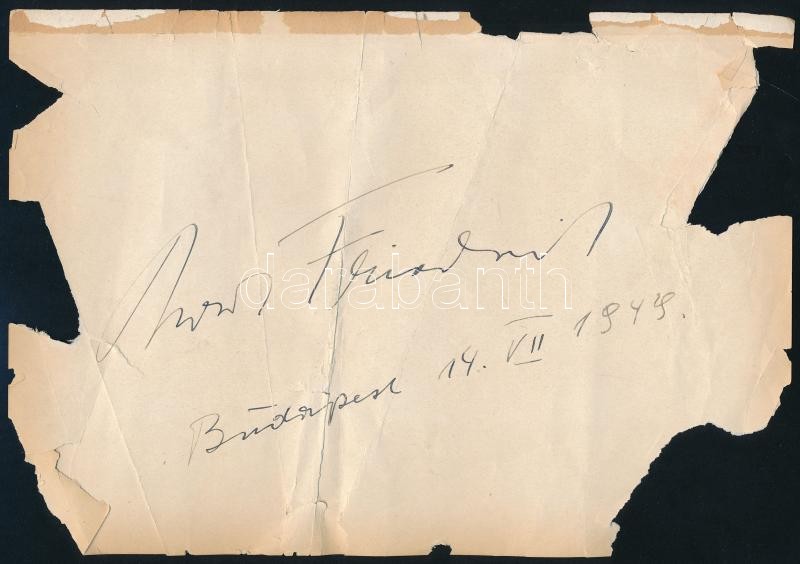 Friedrich
darabanth
Budapest 14. VII 1949.